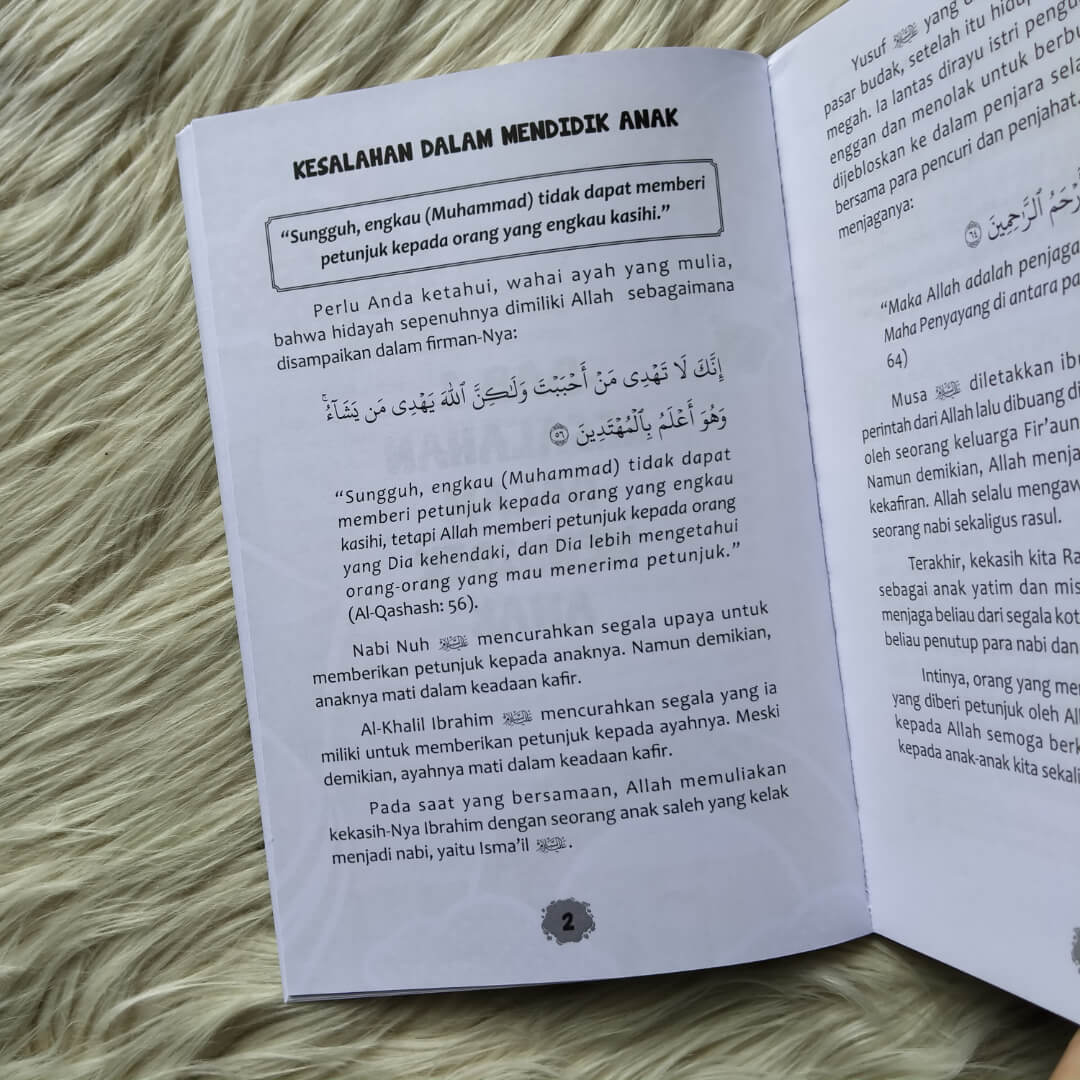 KESALAHAN DALAM MENDIDIK ANAK
“Sungguh, engkau (Muhammad) tidak dapat memberi
petunjuk kepada orang yang engkau kasihi.”
Perlu Anda ketahui, wahai ayah yang mulia,
bahwa hidayah sepenuhnya dimiliki Allah sebagaimana
disampaikan dalam firman-Nya:
إِنَّكَ لَا تَهْدِى مَنْ أَحْبَبْتَ وَلَٰكِنَّ ٱللَّهَ يَهْدِى مَن يَشَآءُ ۚ
وَهُوَ أَعْلَمُ بِٱلْمُهْتَدِينَ ٥٦
“Sungguh, engkau (Muhammad) tidak dapat
memberi petunjuk kepada orang yang engkau
kasihi, tetapi Allah memberi petunjuk kepada orang
yang Dia kehendaki, dan Dia lebih mengetahui
orang-orang yang mau menerima petunjuk.”
(Al-Qashash: 56).
Nabi Nuh mencurahkan segala upaya untuk
memberikan petunjuk kepada anaknya. Namun demikian,
anaknya mati dalam keadaan kafir.
Al-Khalil Ibrahim mencurahkan segala yang ia
miliki untuk memberikan petunjuk kepada ayahnya. Meski
demikian, ayahnya mati dalam keadaan kafir.
Pada saat yang bersamaan, Allah memuliakan
kekasih-Nya Ibrahim dengan seorang anak saleh yang kelak
menjadi nabi, yaitu Isma’il .
2
Yusuf yang
pasar budak, setelah itu hidup
megah. Ia lantas dirayu istri pengu
enggan dan menolak untuk berbu
dijebloskan ke dalam penjara sela
bersama para pencuri dan penjahat.
menjaganya:
ٱلرَّٰحِمِينَ ٦٤
“Maka Allah adalah penjaga
Maha Penyayang di antara pa
64)
Musa diletakkan ibu
perintah dari Allah lalu dibuang di
oleh seorang keluarga Fir’aun
Namun demikian, Allah menja
kekafiran. Allah selalu mengaw
seorang nabi sekaligus rasul.
Terakhir, kekasih kita Ra
sebagai anak yatim dan mis
menjaga beliau dari segala kot
beliau penutup para nabi dan
Intinya, orang yang men
yang diberi petunjuk oleh Al
kepada Allah semoga berk
kepada anak-anak kita sekali